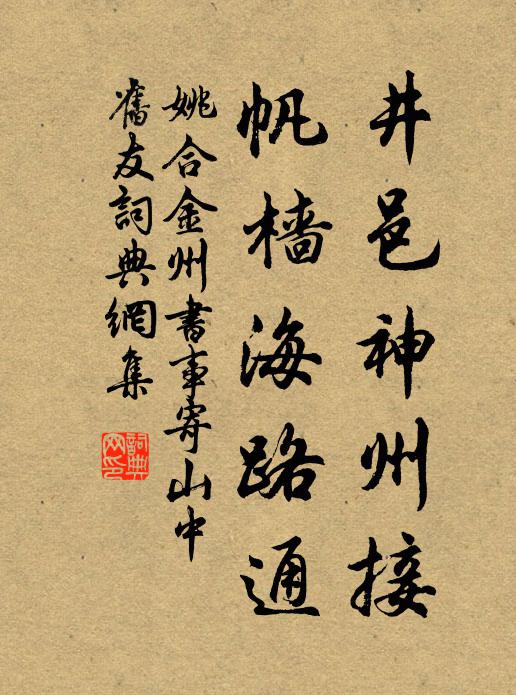 井邑神州接
帆檣海路通
姚合金州書事寄山中
舊友詞典網集
詞典网印